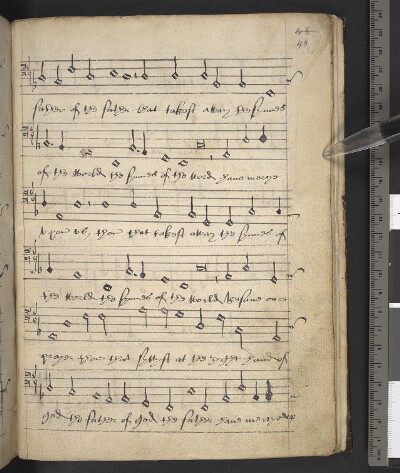 48
father of the father that takest away the synnes
of the world the synnes of the world have mercye
vpon vs, thou that takest away the synnes of
the world the synnes of the world receave oure
prayer thou that syttest at the right hand of
god the father of god the father have mercye